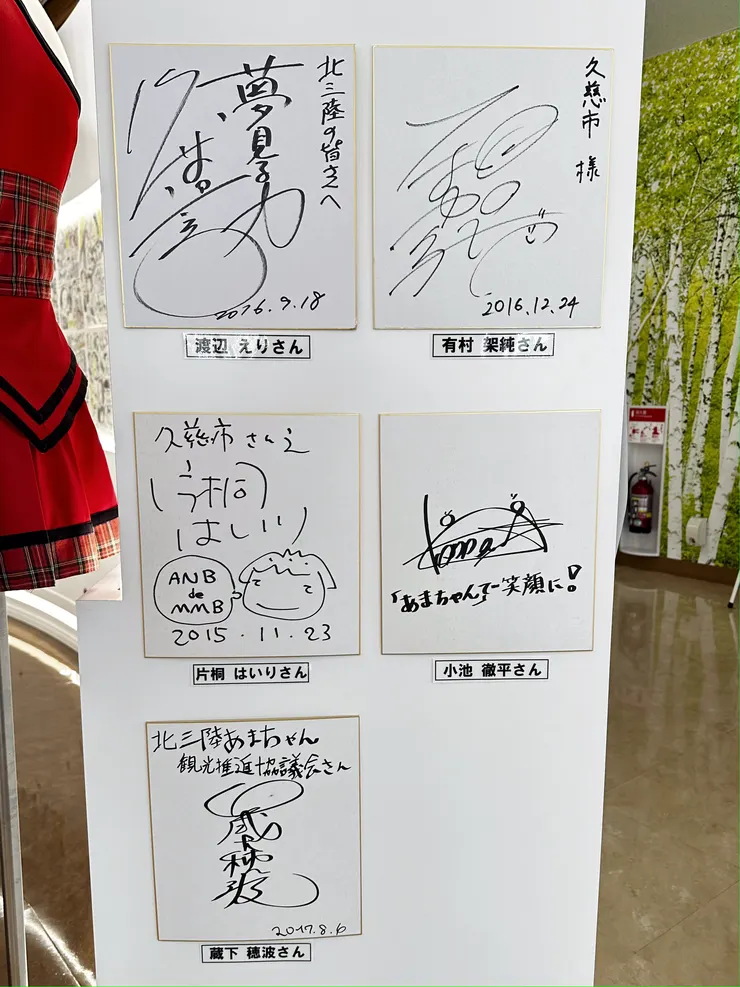 北三陸の皆さんへ
夢見る力
2016.9.18
渡辺 えりさん
久慈市 様
2016.12.24
有村 架純さん
久慈市さんえ
片桐
はいり
ANB
de
MMB
2015.11.23
片桐 はいりさん
「あまちゃんで笑顔に!
小池 徹平さん
北三陸あまちゃん
観光推進協議会さん
蔵下穂波
2017.8.6
蔵下 穂波さん